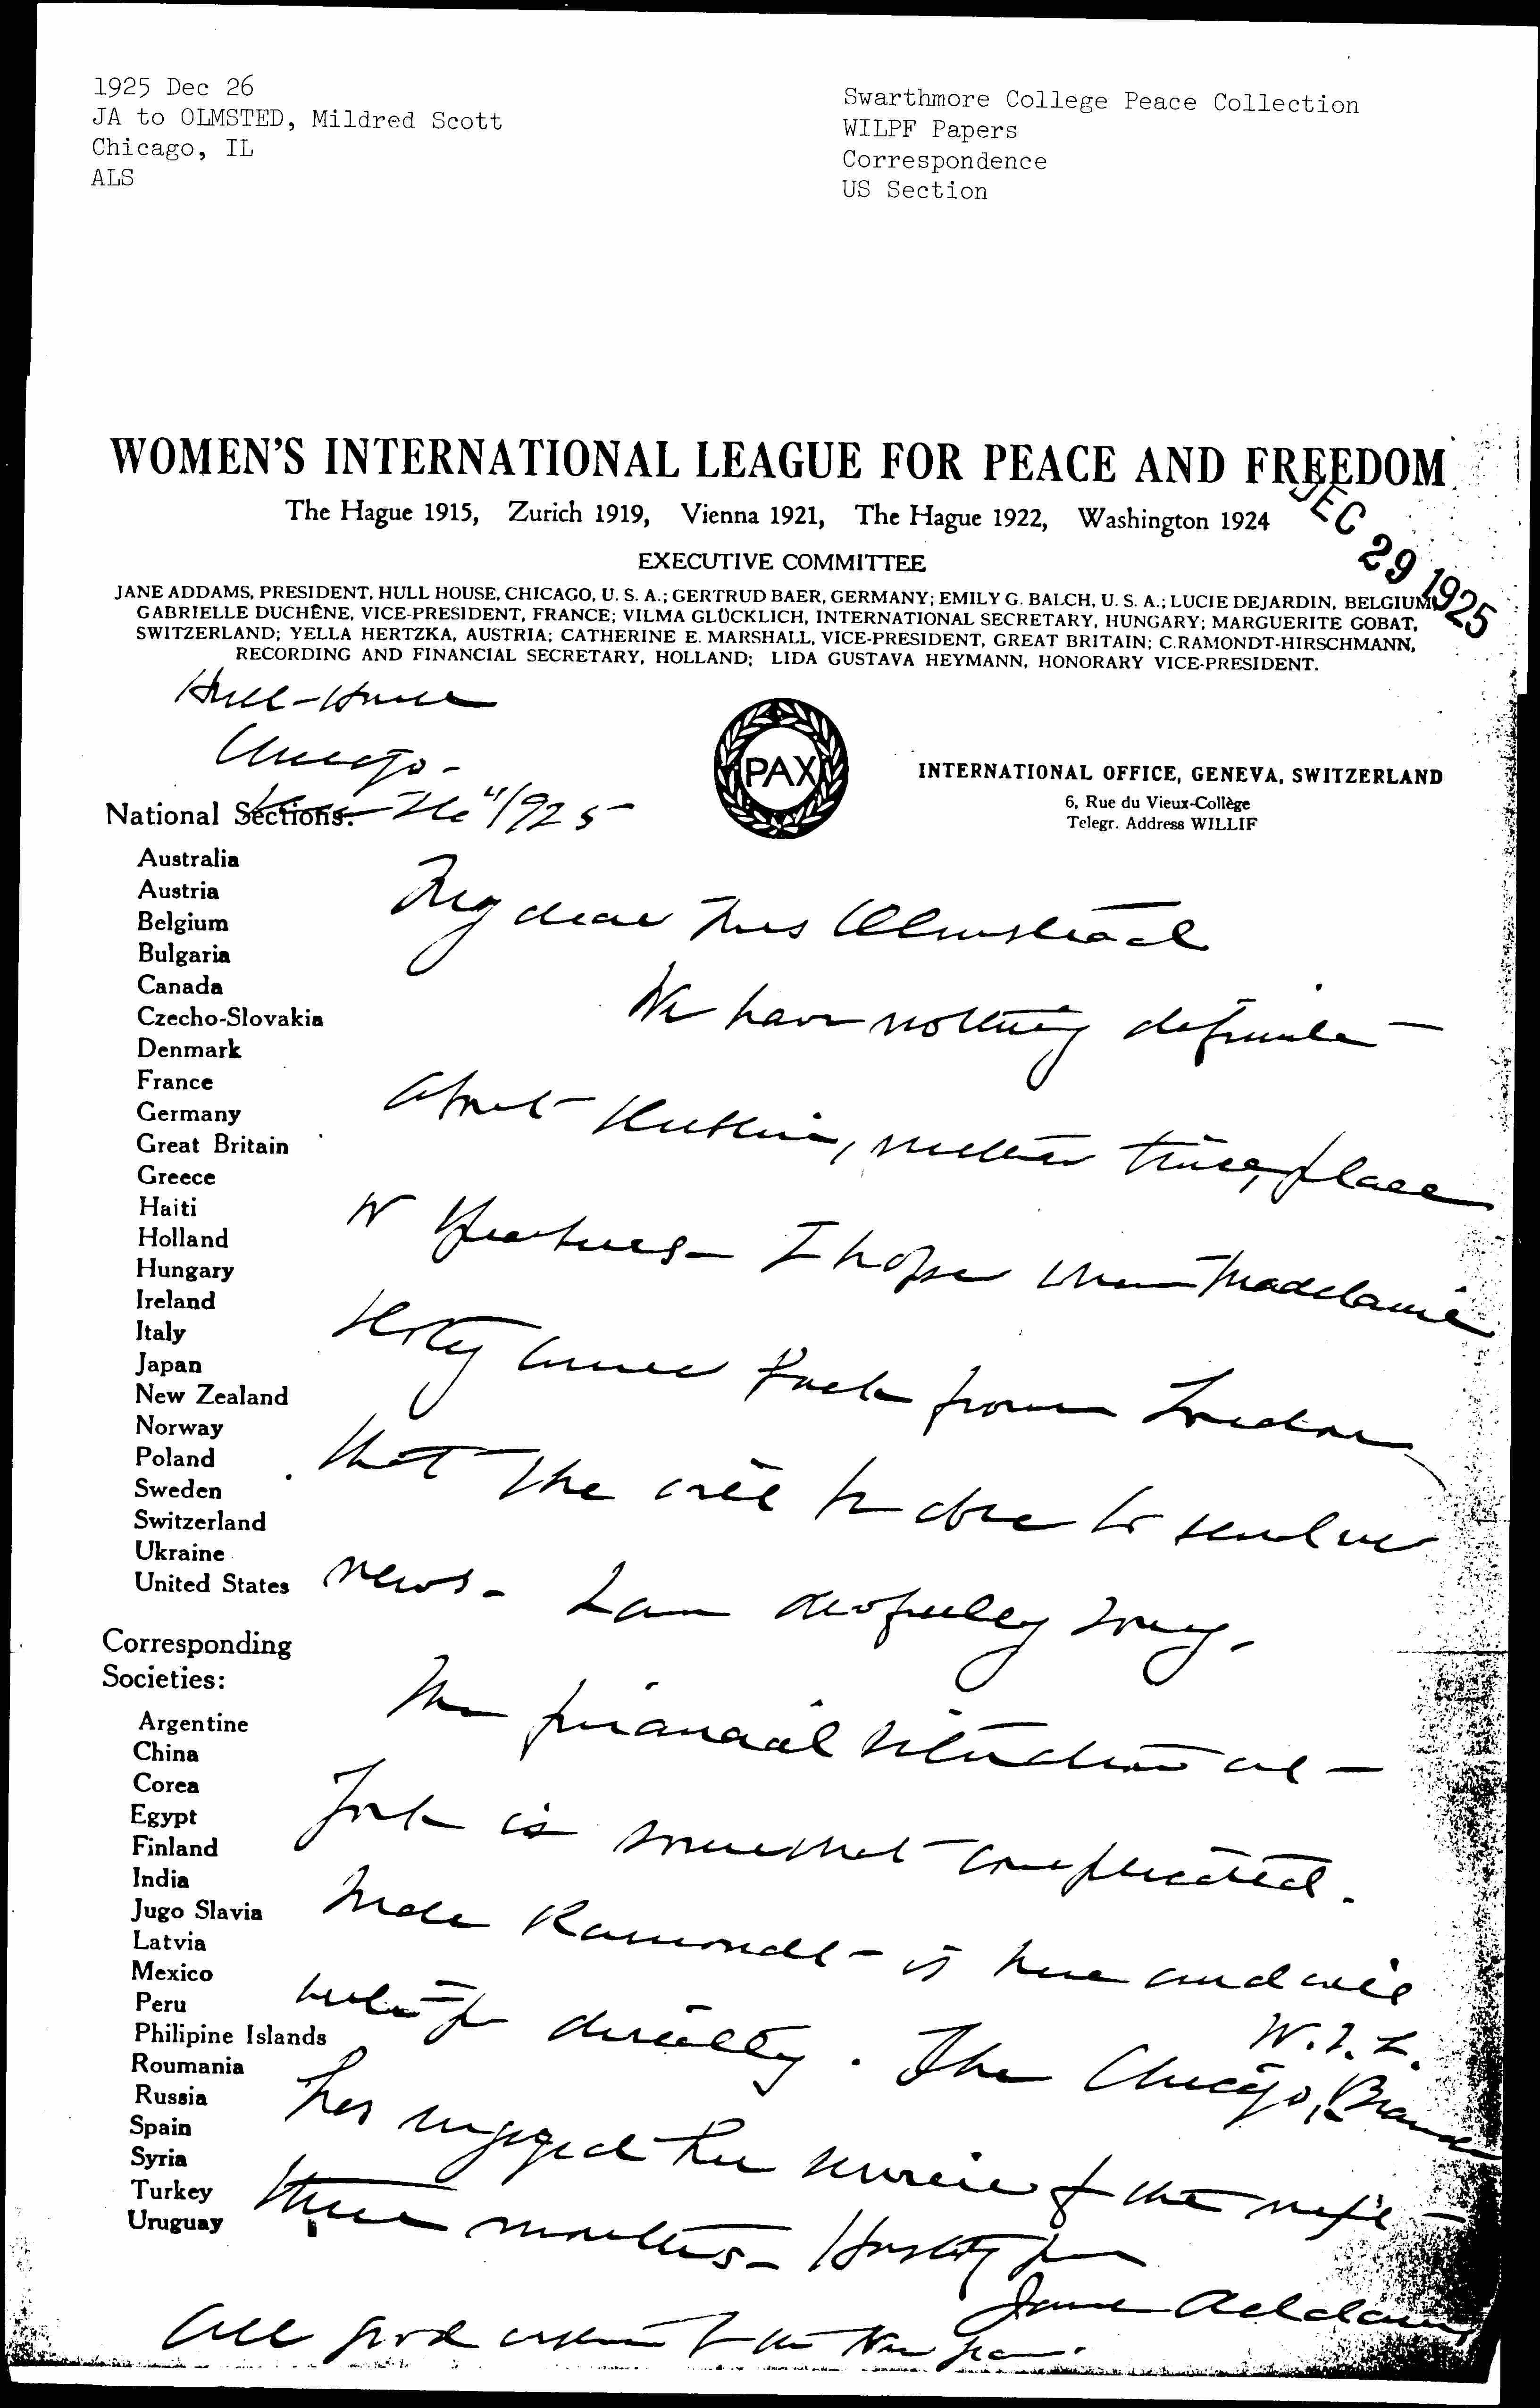 1925 Dec 26
JA to OLMSTED, Mildred Scott
Chicago, IL
ALS
Swarthmore College Peace Collection
WILPF Papers
Correspondence
US Section
WOMEN'S INTERNATIONAL LEAGUE FOR PEACE AND FREEDOM
The Hague 1915, Zurich 1919, Vienna 1921, The Hague 1922, Washington 1924
DEC 29 1925
EXECUTIVE COMMITTEE
JANE ADDAMS, PRESIDENT, HULL HOUSE, CHICAGO, U. S. A.; GERTRUD BAER, GERMANY; EMILY G. BALCH, U. S. A.; LUCIE DEJARDIN, BELGIUM;
GABRIELLE DUCHÊNE, VICE-PRESIDENT, FRANCE; VILMA GLÜCKLICH, INTERNATIONAL SECRETARY, HUNGARY; MARGUERITE GOBAT,
SWITZERLAND; YELLA HERTZKA, AUSTRIA; CATHERINE E. MARSHALL, VICE-PRESIDENT, GREAT BRITAIN; C.RAMONDT-HIRSCHMANN,
RECORDING AND FINANCIAL SECRETARY, HOLLAND; LIDA GUSTAVA HEYMANN, HONORARY VICE-PRESIDENT.
Hull-House
Chicago-
26" 1925
PAX
INTERNATIONAL OFFICE, GENEVA, SWITZERLAND
6, Rue du Vieux-Collège
Telegr. Address WILLIF
National Sections:
Australia
Austria
Belgium
Bulgaria
Canada
Czecho-Slovakia
Denmark
France
Germany
Great Britain
Greece
Haiti
Holland
Hungary
Ireland
Italy
Japan
New Zealand
Norway
Poland
Sweden
Switzerland
Ukraine
United States
Corresponding
Societies:
Argentine
China
Corea
Egypt
Finland
India
Jugo Slavia
Latvia
Mexico
Peru
Philipine Islands
Roumania
Russia
Spain
Syria
Turkey
Uruguay
My dear Mrs Olmstead
We have nothing definite
about Dublin, neither time, place
or speakers- I hope when Madelaine
Doty comes back from London
that she will be able to send us
news- I am awfully sorry.
The financial situation all-
for is somewhat complicated.
Mde Ramondt- is here and will
write directly. The Chicago, W.I.L. Branch
has engaged her services for the next
three months- Hastily yrs
Jane Addams
All good wishes for the New Year.